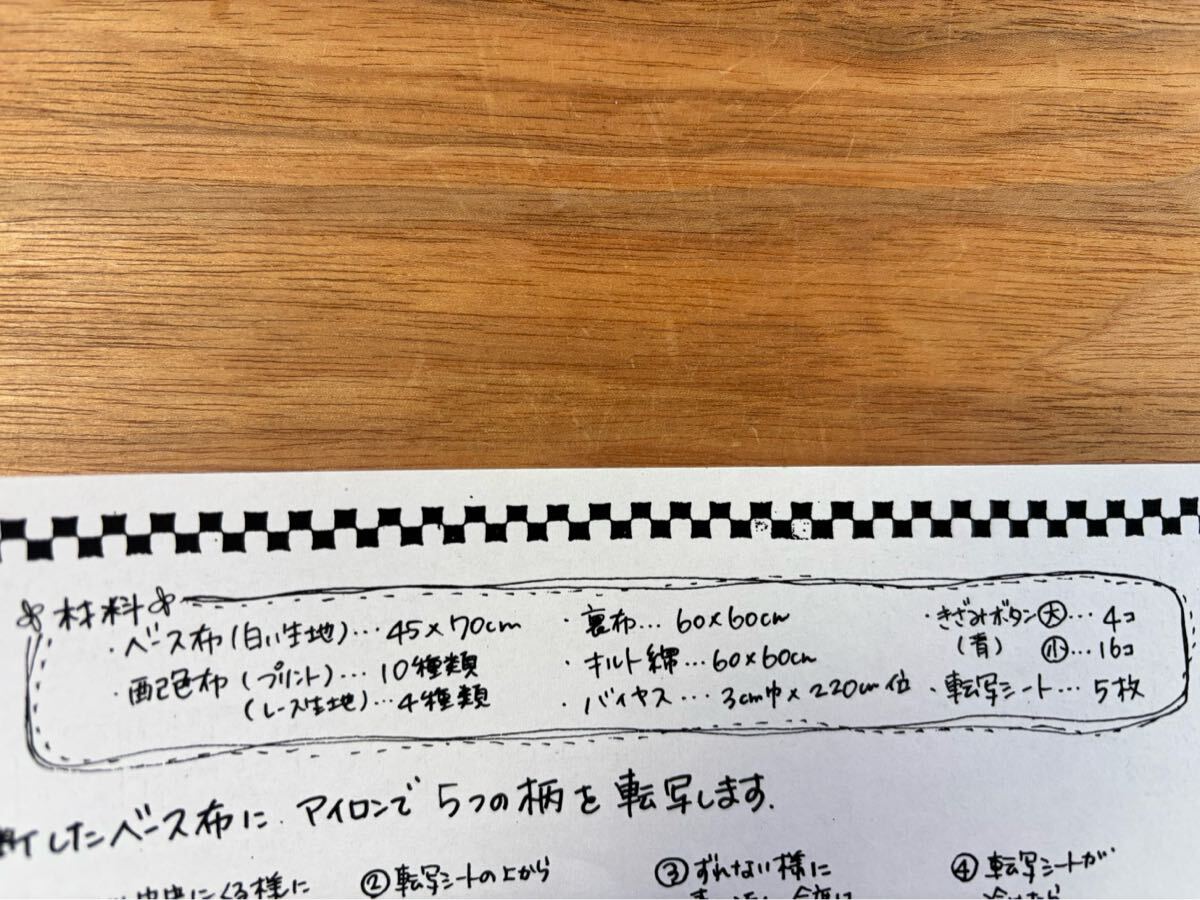 材料
・ベース布(白い生地)…45×70cm
・配色布(プリント)…10種類
(レース生地)…4種類
・裏布…60×60cm
・キルト綿…60×60cm
・バイヤス…3cm巾×220cm位
・きざみボタン㊛…4コ
(青) ㊙…16コ
・転写シート…5枚
したベース布に、アイロンで5つの柄を転写します。
にくる様に
②転写シートの上から
③ずれない様に
④転写シートが